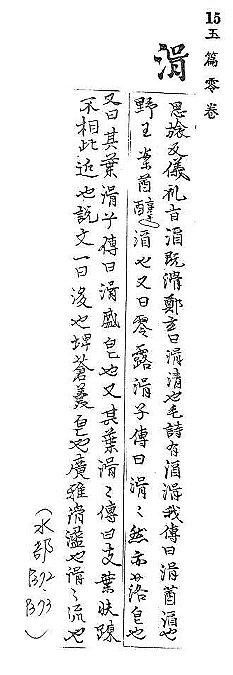 15 玉篇零卷
湑
思旅反儀礼吉湑既湑鄭玄曰湑清也毛詩有酒湑我傳曰湑茜酒也
野王案茜醳湑也又曰零露湑子傳曰湑〻然亦露皃也
又曰其葉湑子傳曰湑盛皃也又其葉湑〻傳曰支葉扶踈
不相比近也說文一曰浚也埤蒼羙皃也廣雅湑瀘也湑〻流也
(水部B72-B73)